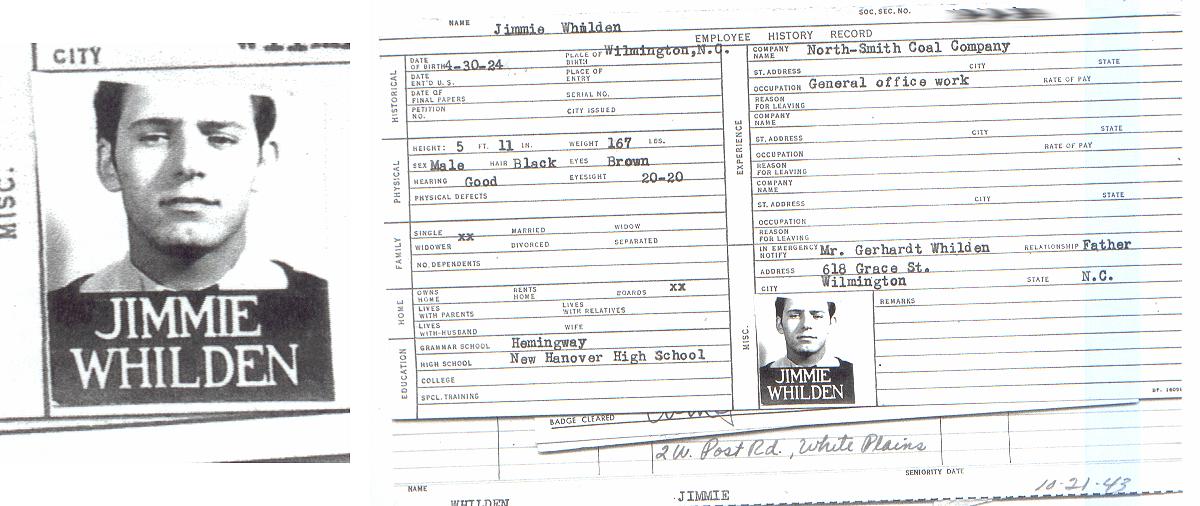 CITY
MISC.
JIMMIE
WHILDEN
NAME Jimmie Whilden SOC. SEC. NO.
EMPLOYEE HISTORY RECORD
HISTORICAL
DATE OF BIRTH 4-30-24 PLACE OF BIRTH Wilmington, N.C.
DATE ENT'D U.S. PLACE OF ENTRY
DATE OF FINAL PAPERS SERIAL NO.
PETITION NO. CITY ISSUED
PHYSICAL
HEIGHT: 5 FT. 11 IN. WEIGHT 167 LBS.
SEX Male HAIR Black EYES Brown
HEARING Good EYESIGHT 20-20
PHYSICAL DEFECTS
FAMILY
SINGLE xx MARRIED WIDOW
WIDOWER DIVORCED SEPARATED
NO. DEPENDENTS
HOME
OWNS HOME RENTS HOME BOARDS xx
LIVES WITH PARENTS LIVES WITH RELATIVES
LIVES WITH-HUSBAND WIFE
EDUCATION
GRAMMAR SCHOOL Hemingway
HIGH SCHOOL New Hanover High School
COLLEGE
SPCL. TRAINING
EXPERIENCE
COMPANY NAME North-Smith Coal Company
ST. ADDRESS CITY STATE
OCCUPATION General office work RATE OF PAY
REASON FOR LEAVING
COMPANY NAME
ST. ADDRESS CITY STATE
OCCUPATION RATE OF PAY
REASON FOR LEAVING
COMPANY NAME
ST. ADDRESS CITY STATE
OCCUPATION
REASON FOR LEAVING
MISC.
IN EMERGENCY NOTIFY Mr. Gerhardt Whilden RELATIONSHIP Father
ADDRESS 618 Grace St.
CITY Wilmington STATE N.C.
JIMMIE
WHILDEN
REMARKS
BADGE CLEARED
2 W. Post Rd., White Plains
SENIORITY DATE
10-21-43
NAME WHILDEN JIMMIE